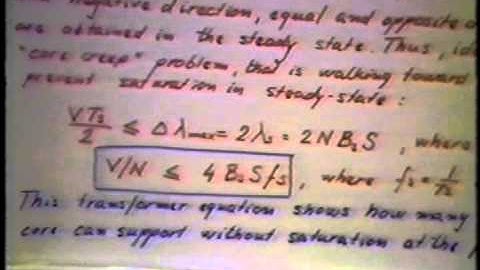 negative direction, equal and opposite
are obtained in the steady state. Thus,
"core creep" problem, that is walking toward
prevent saturation in steady-state:
VTs/2 ≤ Δλmax = 2λs = 2NBsS, where
V/N ≤ 4BsSfs, where fs = 1/Ts
This transformer equation shows how many
core can support without saturation at the